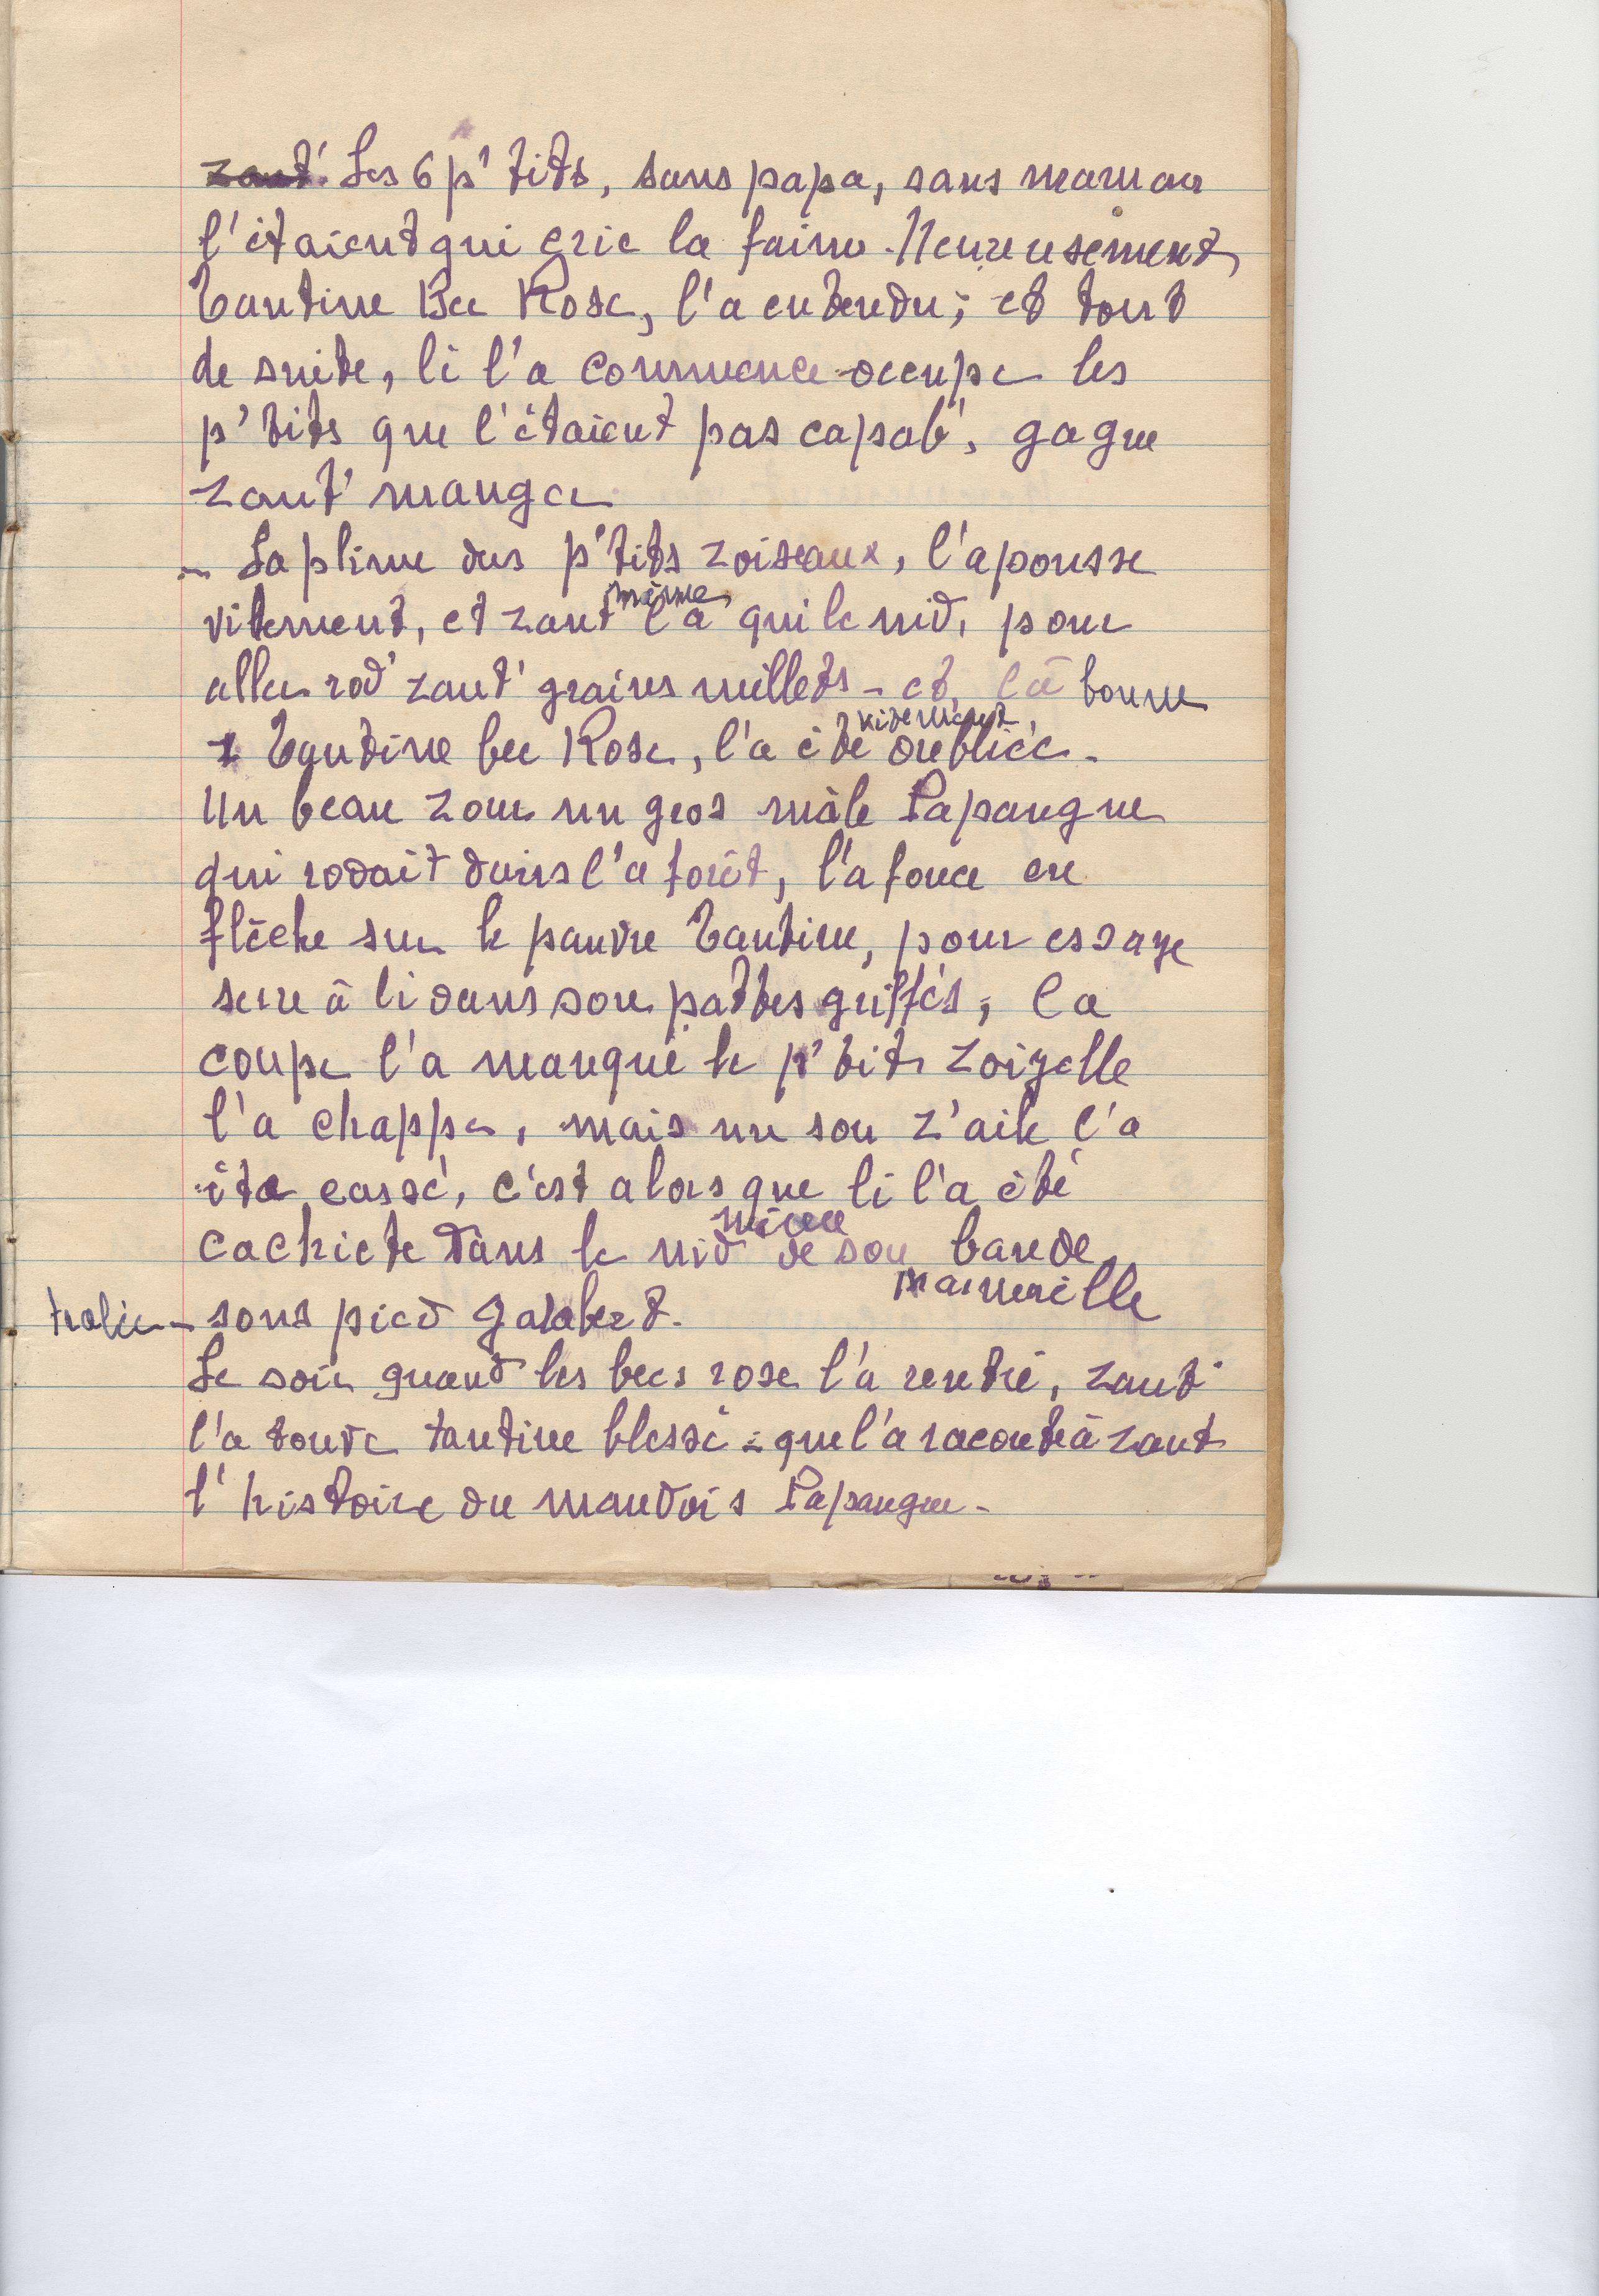 zaut'. Les 6 p'tits, sans papa, sans maman
l'étaient qui crie la faim. Heureusement,
Tantine Bec Rose, l'a entendu; et tout
de suite, li l'a commence occupe les
p'tits que l'étaient pas capab', gagne
zaut' manger
- La plime des p'tits zoiseaux, l'a pousse
vitement, et zaut même l'a qui le nid, pour
aller rod' zaut' graines millets - et, la bonne
Tantine bec Rose, l'a été vitement oubliée.
Un beau zour un gros mâle Papangue
qui rodait dans l'a forêt, l'a fonce en
flèche sur le pauvre Tantine, pour essaye
serre à li dans son pattes griffés; la
coupe l'a manqué le p'tits zoizelle
l'a chappe, mais un son z'aile l'a
été cassé, c'est alors que li l'a été
cachiete dans le nid de son bande
marmaille
sous pied galabert.
Le soir quand les becs rose l'a rentré, zaut'
l'a touve tantine blessé - que l'a raconté à zaut
l'histoire du mauvois Papangue -